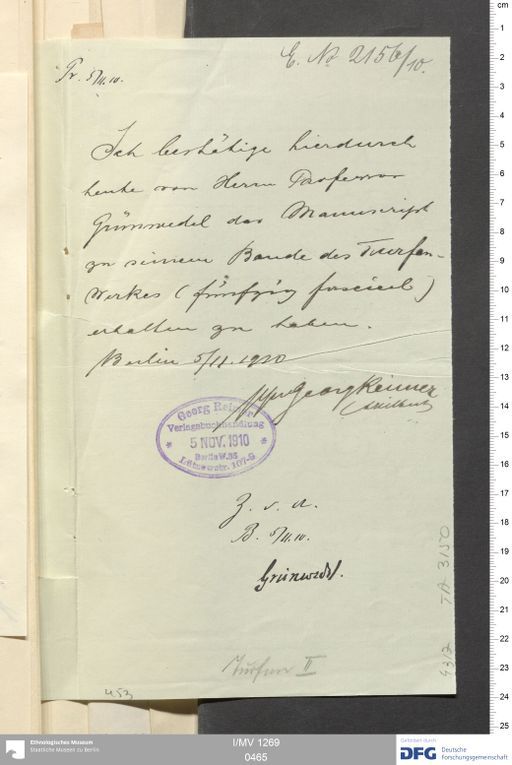 E. No 2156/10.
Pr. 5/11.10.
Ich bestätige hierdurch
heute von Herrn Professor
Grünwedel das Manuscript
zu seinem Bande des Turfan-
Werkes (fünfzig fascicel)
erhalten zu haben.
Berlin 5/11.1910
Georg Reimer
Georg Reimer
Verlagsbuchhandlung
* 5 NOV. 1910 *
Berlin W.35
Lützowstr. 107-8
Z. d. A.
B. 5/11.10.
Grünwedel.
Turfan II
453
4312 TA 3150
cm
1
2
3
4
5
6
7
8
9
10
11
12
13
14
15
16
17
18
19
20
21
22
23
24
25
Ethnologisches Museum
Staatliche Museen zu Berlin
I/MV 1269
0465
Gefördert durch
DFG Deutsche
Forschungsgemeinschaft